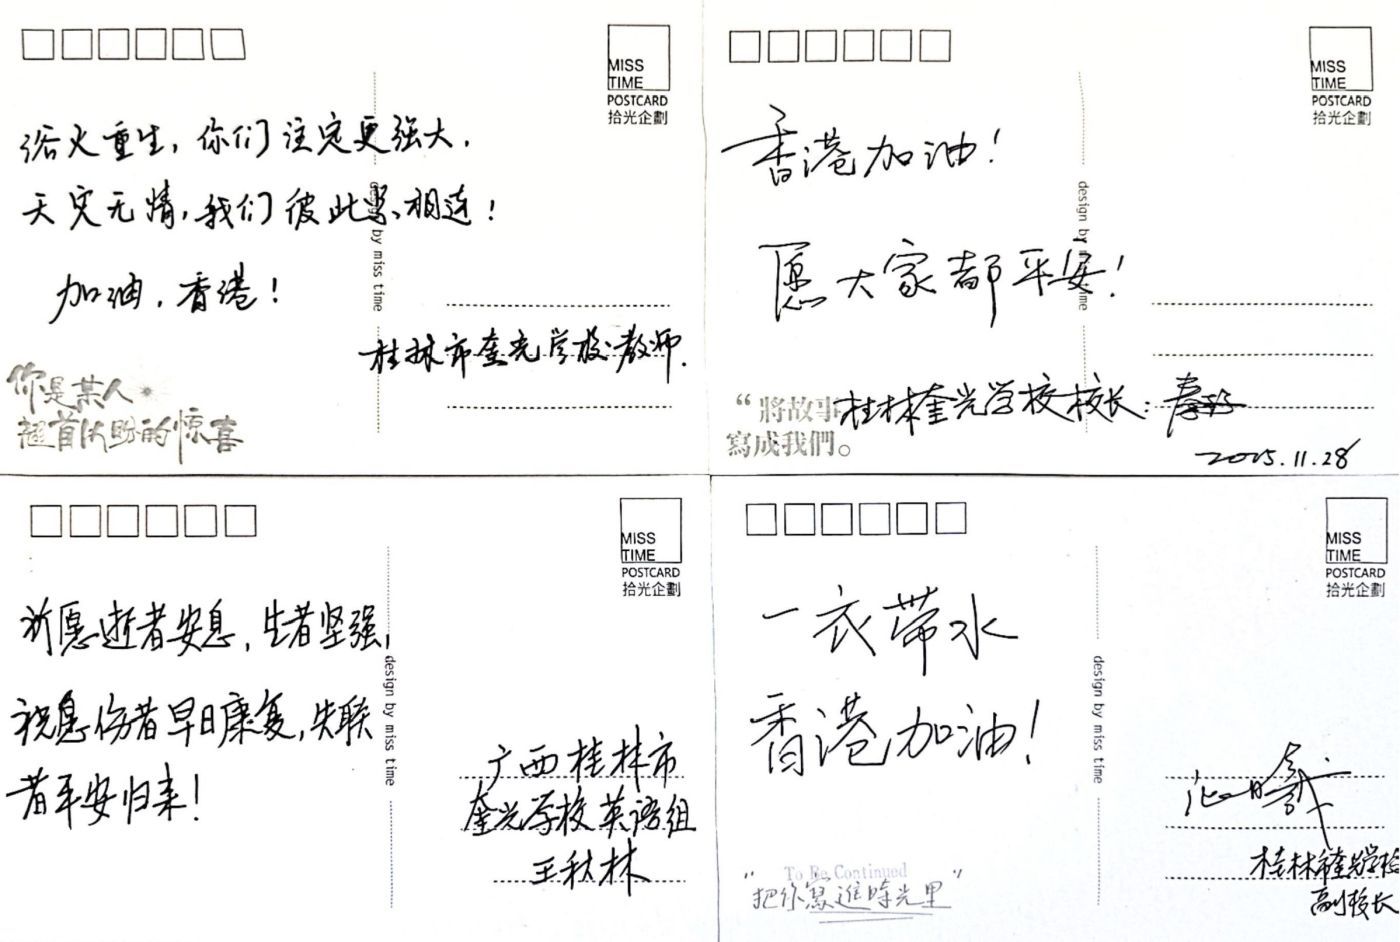 MISS
TIME
POSTCARD
拾光企劃
浴火重生，你们注定更强大，
天灾无情，我们彼此紧相连！
加油，香港！
桂林市奎光学校教师.
design by miss time
你是某人
翘首以盼的惊喜
MISS
TIME
POSTCARD
拾光企劃
香港加油！
愿大家都平安！
design by miss time
“將故事
寫成我們。
桂林奎光学校校长：
2025.11.28
MISS
TIME
POSTCARD
拾光企劃
祈愿逝者安息，生者坚强，
祝愿伤者早日康复，失联
者平安归来！
design by miss time
广西桂林市
奎光学校英语组
王秋林
MISS
TIME
POSTCARD
拾光企劃
一衣带水
香港加油！
design by miss time
桂林市奎光学校
副校长
To Be Continued
“把你寫進時光里”